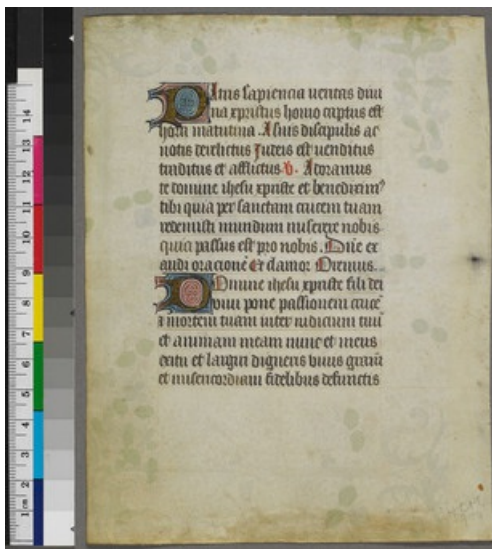 Patris sapiencia ueritas diui
na xpristus homo captus est
hora matutina. A suis discipulis ac
notis derelictus Iudeis est uenditus
traditus et afflictus v. Adoramus
te domine ihesu xpriste et benedicimꝰ
tibi quia per sanctam crucem tuam
redemisti mundum miserere nobis
quia passus est pro nobis. Dn̄e ex
audi oracionē Et clamor Oremus
Domine ihesu xpriste fili dei
viui pone passionem crucē
⁊ mortem tuam inter iudicium tuū
et animam meam nunc et meus
exitu et largiri digneris viuis gratiā
et misericordiam fidelibus defunctis
14
13
12
11
10
9
8
7
6
5
4
3
2
1 cm